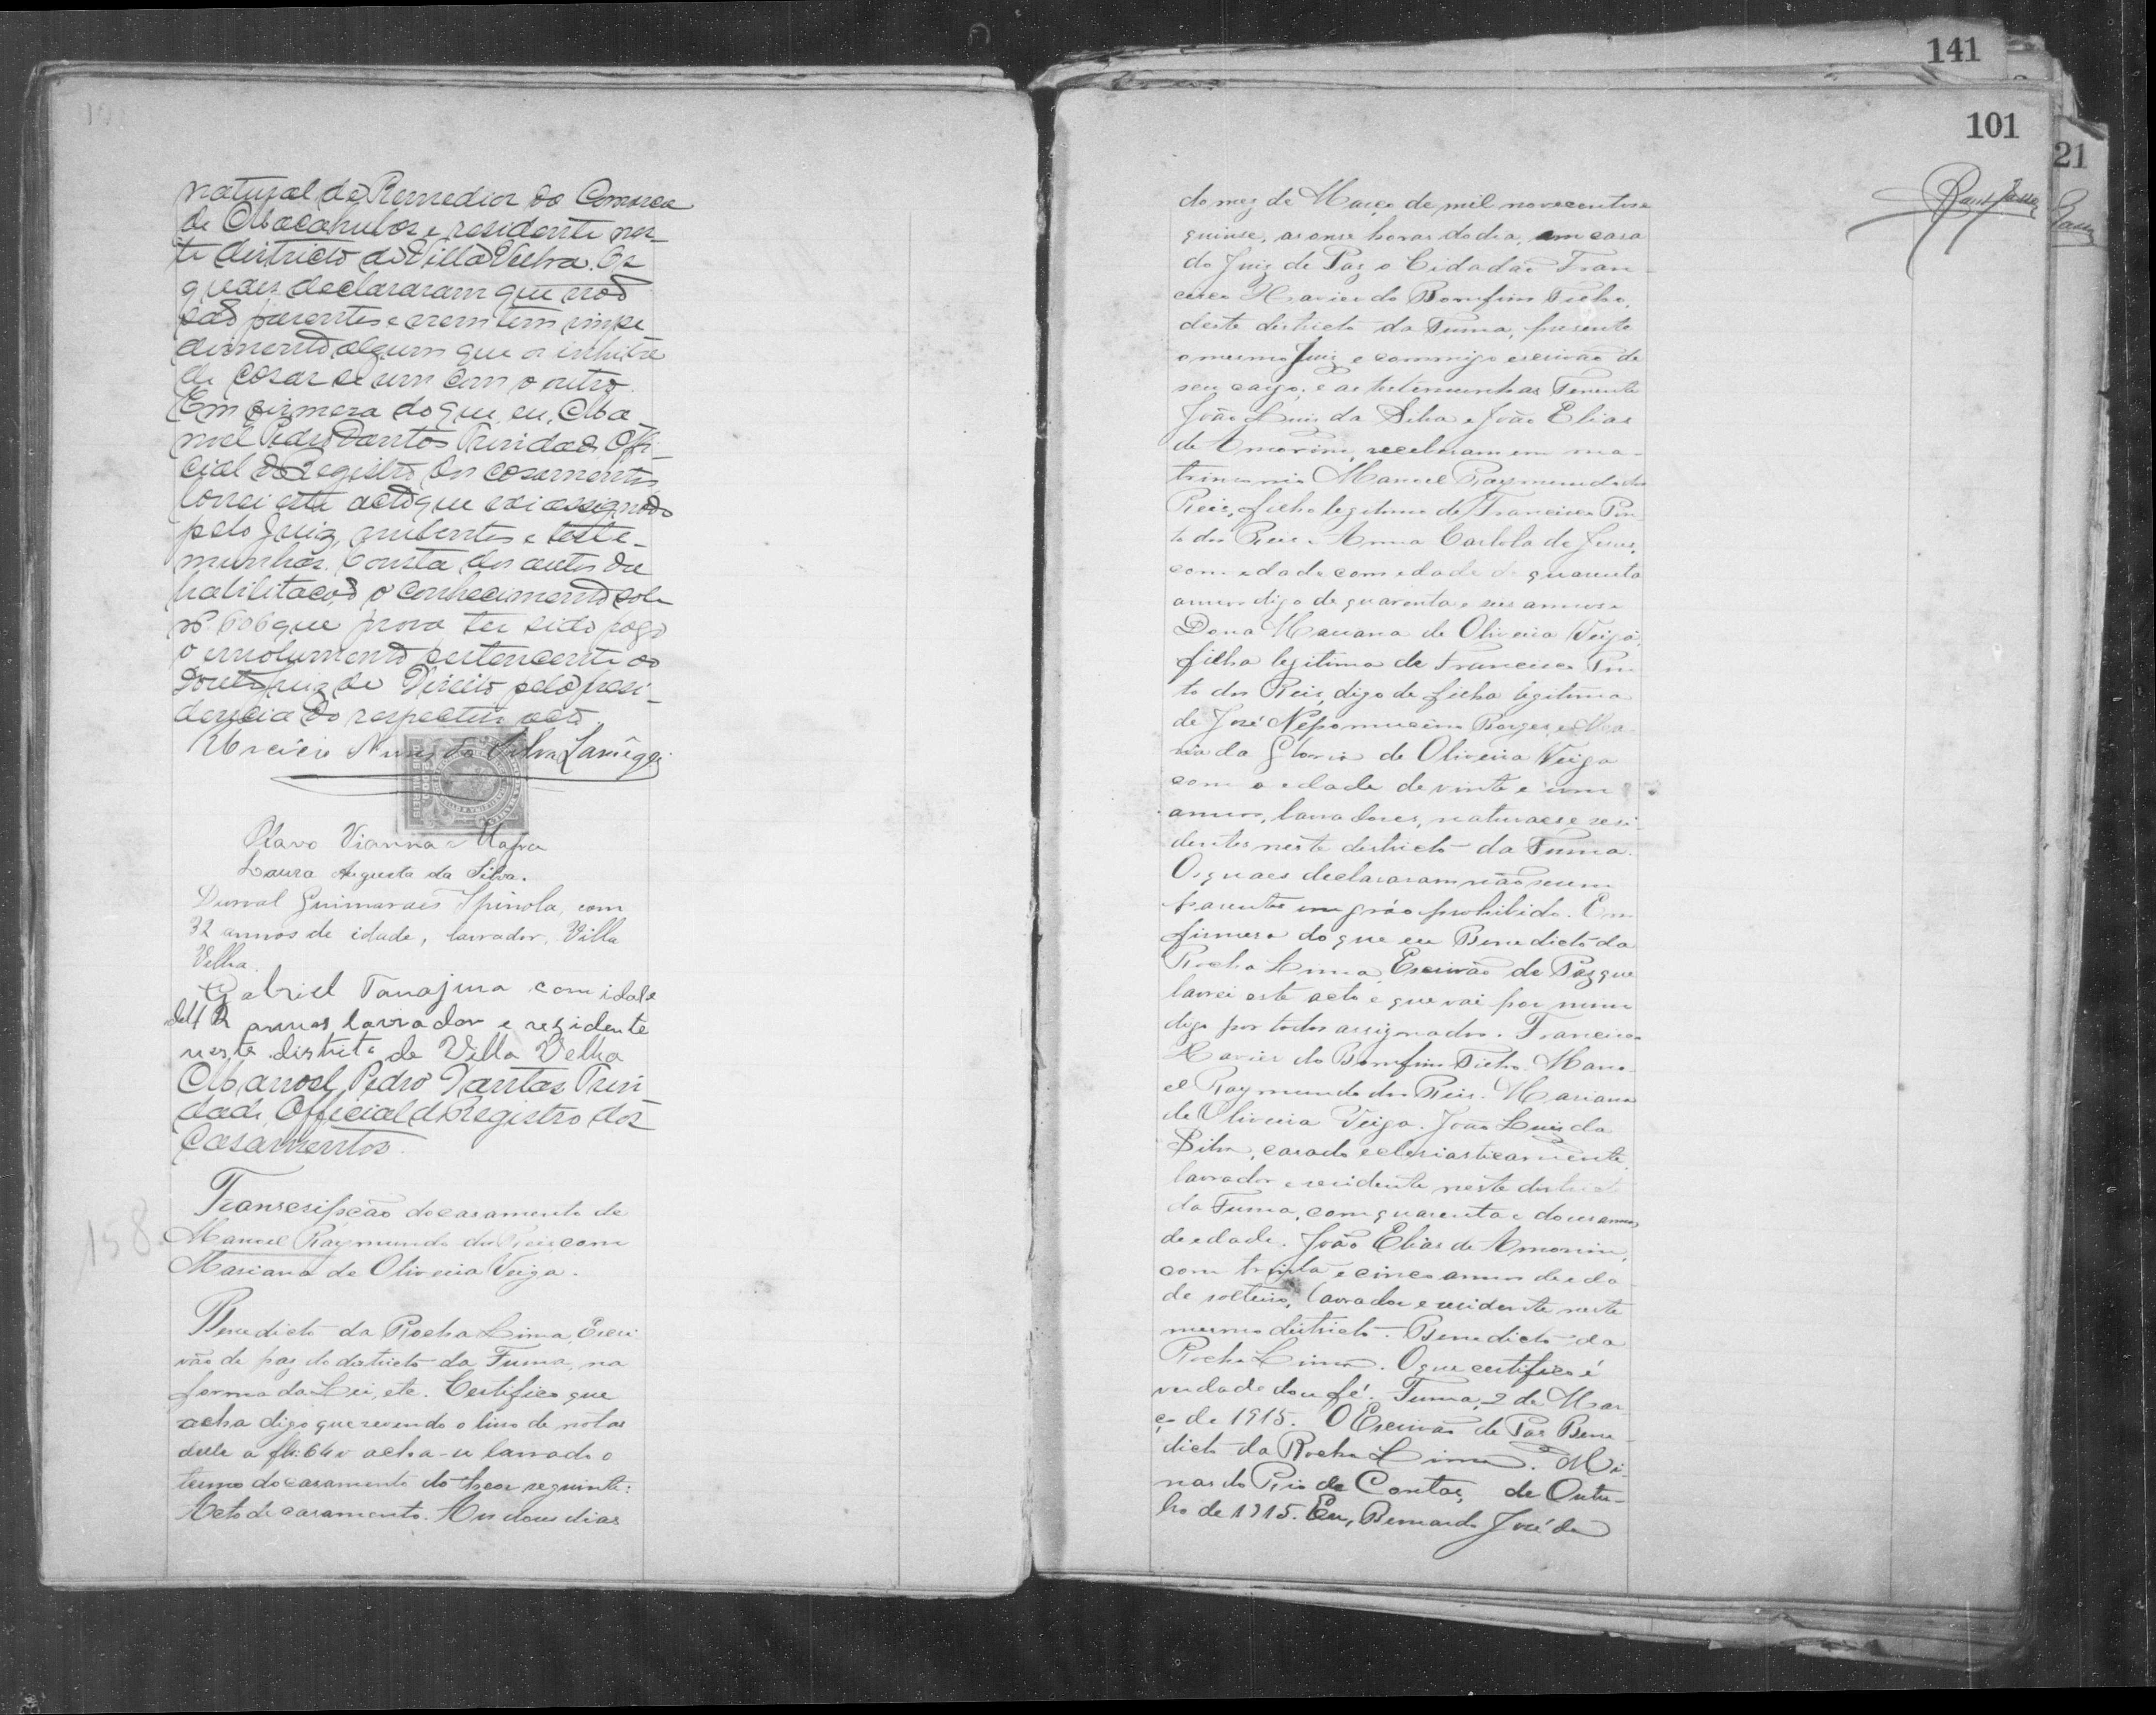 natural de Remedios da Comarca
de Macahubas e residente nes-
te districto de Villa Velha. Os
quaes declararam que não
são parentes e nem tem impe
dimento algum que os inhiba
de casar se um com o outro.
Em firmeza do que, eu, Ma
noel Pedro Dantas Trindade, Offi-
cial do Registro dos casamentos
lavrei este acto que vai assignado
pelo Juiz, nubentes e teste-
munhas. Consta dos autos da
habilitação o conhecimento sob
nº 606 que prova ter sido pago
o emolumento pertencente ao
Juiz de Direito pela presi-
dencia do respectivo acto.
Nunes da Silva
Olavo Vianna Mafra
Laura Augusta da Silva.
Durval Guimarães Spinola, com
32 annos de idade, lavrador, Villa
Velha.
Gabriel Tanajura com idade
de 42 annos lavrador e rezidente
neste distrito de Villa Velha
Manoel Pedro Dantas Trin
dade, Official do Registro dos
Casamentos.
158
Transcripção do casamento de
Manoel Raymundo dos Reis com
Mariana de Oliveira Veiga.
Benedicto da Rocha Lima, Escri
vão de paz do districto da Furna, na
forma da Lei, etc. Certifico que
acha digo que revendo o livro de notas
delle a fls: 64 v acha-se lavrado o
termo do casamento do theor seguinte:
Acto de casamento. Aos dous dias
141
101
21
do mez de Março de mil novecentos e
quinse, as onse horas do dia, em casa
do Juiz de Paz o Cidadão Fran-
cisco Xavier do Bomfim Filho,
deste districto da Furna, presente
o mesmo Juiz e commigo escrivão de
seu cargo, e as testemunhas Tenente
João Luis da Silva e João Elias
de Amorim, receberam em ma-
trimonio Manoel Raymundo dos
Reis, filho legitimo de Francisco Pin
to dos Reis e Anna Carlota de Jesus,
com edade com edade de quarenta
annos digo de quarenta e seis annos e
Dona Mariana de Oliveira Veiga,
filha legitima de Francisco Pin
to dos Reis, digo de filha legitima
de José Nepomuceno Borges e Ma-
ria da Gloria de Oliveira Veiga
com a edade de vinte e um
annos, lavradores, naturaes e resi-
dentes neste districto da Furna.
Os quaes declararam não serem
parentes em gráo prohibido. Em
firmesa do que eu Benedicto da
Rocha Lima, Escrivão de Paz que
lavrei este acto e que vai por mim
digo por todos assignados. Francisco
Xavier do Bomfim Filho. Mano-
el Raymundo dos Reis. Mariana
de Oliveira Veiga. João Luis da
Silva, casado eclesiasticamente,
lavrador e residente neste districto
da Furna, com quarenta e dous annos
de edade. João Elias de Amorim,
com trinta e cinco annos de eda
de solteiro, lavrador e residente neste
mesmo districto. Benedicto da
Rocha Lima. O que certifico é
verdade dou fé. Furna, 2 de Mar
ço de 1915. O Escrivão de Paz Bene-
dicto da Rocha Lima. Mi-
nas do Rio de Contas, de Outu-
bro de 1915. Eu, Bernardo José de